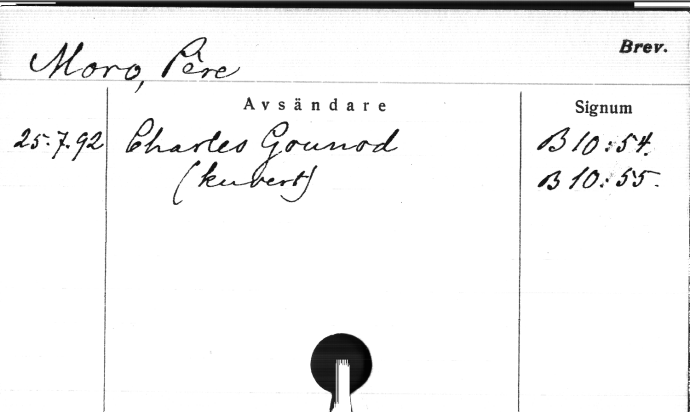 Brev.
Moro, Père
Avsändare
Signum
25.7.92 Charles Gounod B 10:54.
(kuvert) B 10:55.